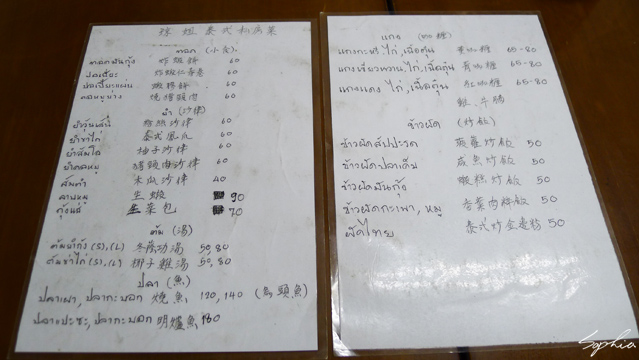 泰式和病菜
ทอด (小食)
ทอดมันกุ้ง 炸蝦餅 60
ปอเปี๊ยะ 60
ปอเปี๊ยะแผ่น 蝦捲餅 60
คอหมูย่าง 燒豬頸肉 60
ยำ (沙律)
ยำวุ้นเส้น 粉絲沙律 60
ยำขาไก่ 泰式鳳爪 60
ยำส้มโอ 柚子沙律 60
ยำคอหมู 豬頸肉沙律 60
ส้มตำ 木瓜沙律 40
ลาบหมู 生蝦 90
กุ้งแช่ 生菜包 70
ต้ม (湯)
ต้มยำกุ้ง (S), (L) 冬蔭功湯 50, 80
ต้มข่าไก่ (S), (L) 椰子雞湯 50, 80
ปลา (魚)
ปลาเผา, ปลากะพอก 燒魚 120, 140 (烏頭魚)
ปลาแปะซะ, ปลากะพอก 明爐魚 180
แกง (咖喱)
แกงกะหรี่ ไก่, เนื้อตุ๋น 黃咖喱 65-80
แกงเขียวหวาน, ไก่, เนื้อตุ๋น 青咖喱 65-80
แกงแดง ไก่, เนื้อตุ๋น 紅咖喱 65-80
雞.牛腩
ข้าวผัด (炒飯)
ข้าวผัดสัปปะรด 菠蘿炒飯 50
ข้าวผัดปลาเค็ม 咸魚炒飯 50
ข้าวผัดมันกุ้ง 蝦糕炒飯 50
ข้าวผัดกะเพา, หมู 香葉肉碎飯 50
ผัดไทย 泰式炒金邊粉 50
Sophia